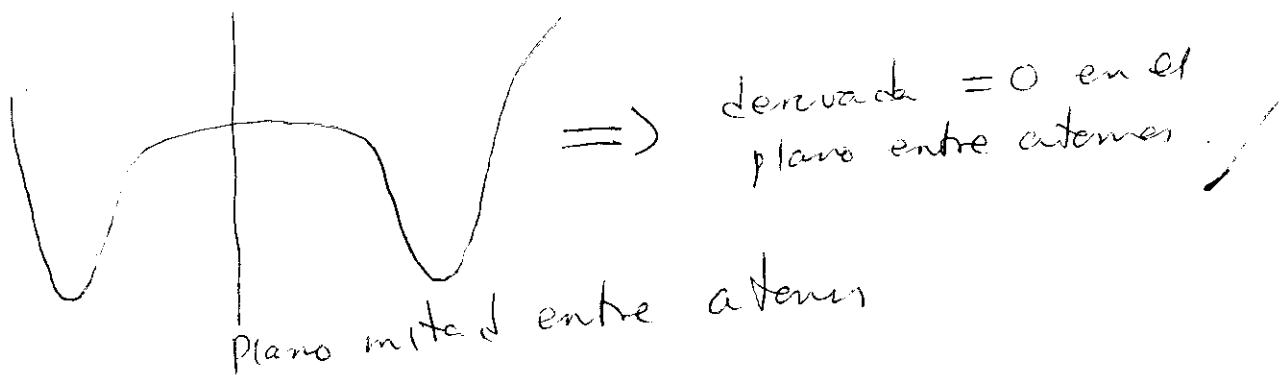 => derivada = 0 en el
plano entre atomos.
Plano mitad entre atomos